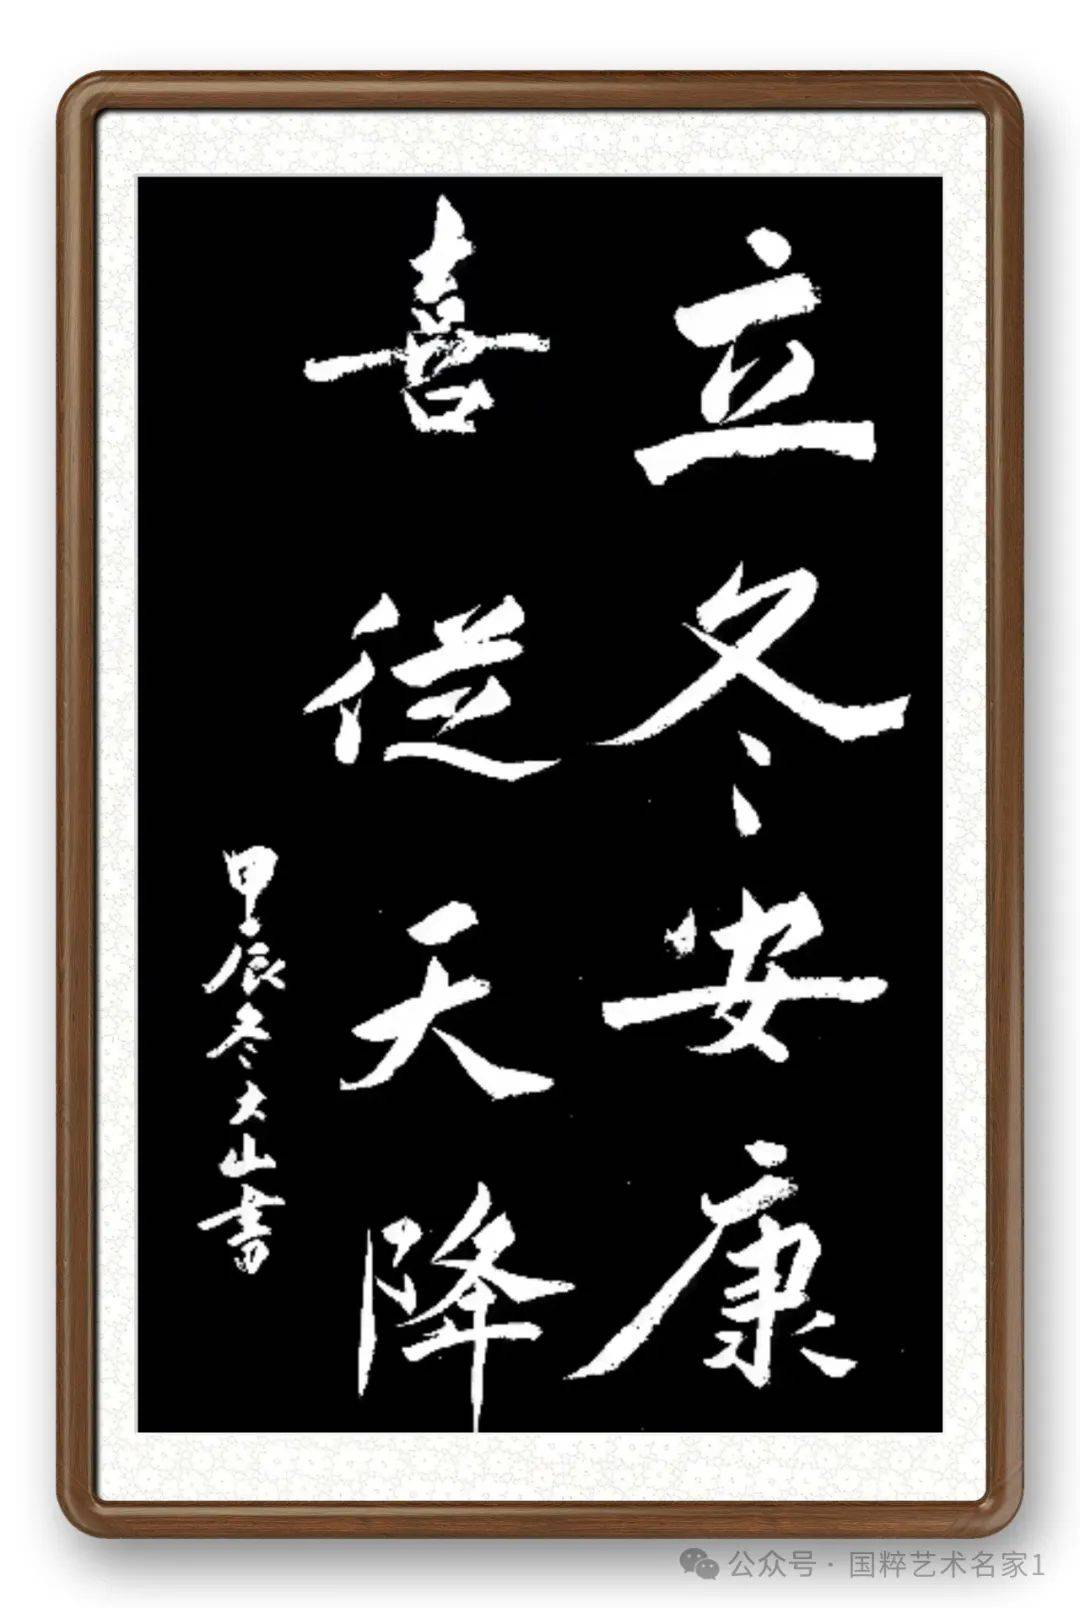 立冬安康
喜從天降
甲辰冬大山書
公众号·国粹艺术名家1